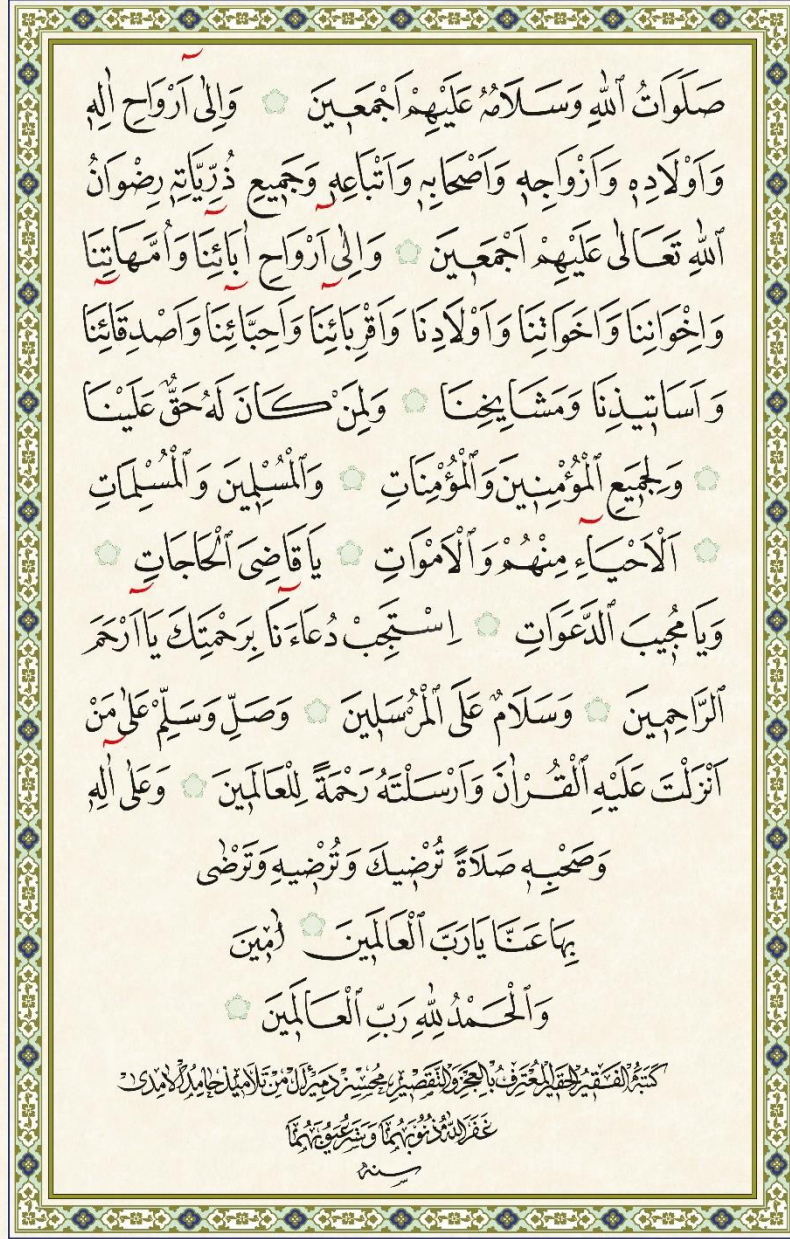 صَلَوَاتُ ٱللّٰهِ وَسَلَامُهُ عَلَيْهِمْ اَجْمَعِينَ ۞ وَاِلٰٓى اَرْوَاحِ اٰلِهِ
وَاَوْلَادِهِ وَاَزْوَاجِهِ وَاَصْحَابِهِ وَاَتْبَاعِهِ وَجَمِيعِ ذُرِّيَّاتِهِ رِضْوَانُ
ٱللّٰهِ تَعَالٰى عَلَيْهِمْ اَجْمَعِينَ ۞ وَاِلٰٓى اَرْوَاحِ اٰبَٓائِنَا وَاُمَّهَاتِنَا
وَاِخْوَانِنَا وَاَخَوَاتِنَا وَاَوْلَادِنَا وَاَقْرِبَٓائِنَا وَاَحِبَّٓائِنَا وَاَصْدِقَٓائِنَا
وَاَسَاتِيذِنَا وَمَشَايِخِنَا ۞ وَلِمَنْ كَانَ لَهُ حَقٌّ عَلَيْنَا
۞ وَلِجَمِيعِ ٱلْمُؤْمِنِينَ وَٱلْمُؤْمِنَاتِ ۞ وَٱلْمُسْلِمِينَ وَٱلْمُسْلِمَاتِ
۞ اَلْاَحْيَٓاءِ مِنْهُمْ وَٱلْاَمْوَاتِ ۞ يَا قَاضِىَ ٱلْحَاجَاتِ ۞
وَيَا مُجِيبَ ٱلدَّعَوَاتِ ۞ اِسْتَجِبْ دُعَٓاءَنَا بِرَحْمَتِكَ يَٓا اَرْحَمَ
ٱلرَّاحِمِينَ ۞ وَسَلَامٌ عَلَى ٱلْمُرْسَلِينَ ۞ وَصَلِّ وَسَلِّمْ عَلٰى مَنْ
اَنْزَلْتَ عَلَيْهِ ٱلْقُرْاٰنَ وَاَرْسَلْتَهُ رَحْمَةً لِلْعَالَمِينَ ۞ وَعَلٰٓى اٰلِهِ
وَصَحْبِهِ صَلَاةً تُرْضِيكَ وَتُرْضِيهِ وَتَرْضٰى
بِهَا عَنَّا يَا رَبَّ ٱلْعَالَمِينَ ۞ اٰمِينَ
وَٱلْحَمْدُ لِلّٰهِ رَبِّ ٱلْعَالَمِينَ ۞
كتبه الفقير الحقير المعترف بالعجز والتقصير محسن دميرال من تلاميذ حامد الآمدى
غفر الله ذنوبهما وستر عيوبهما
سنه